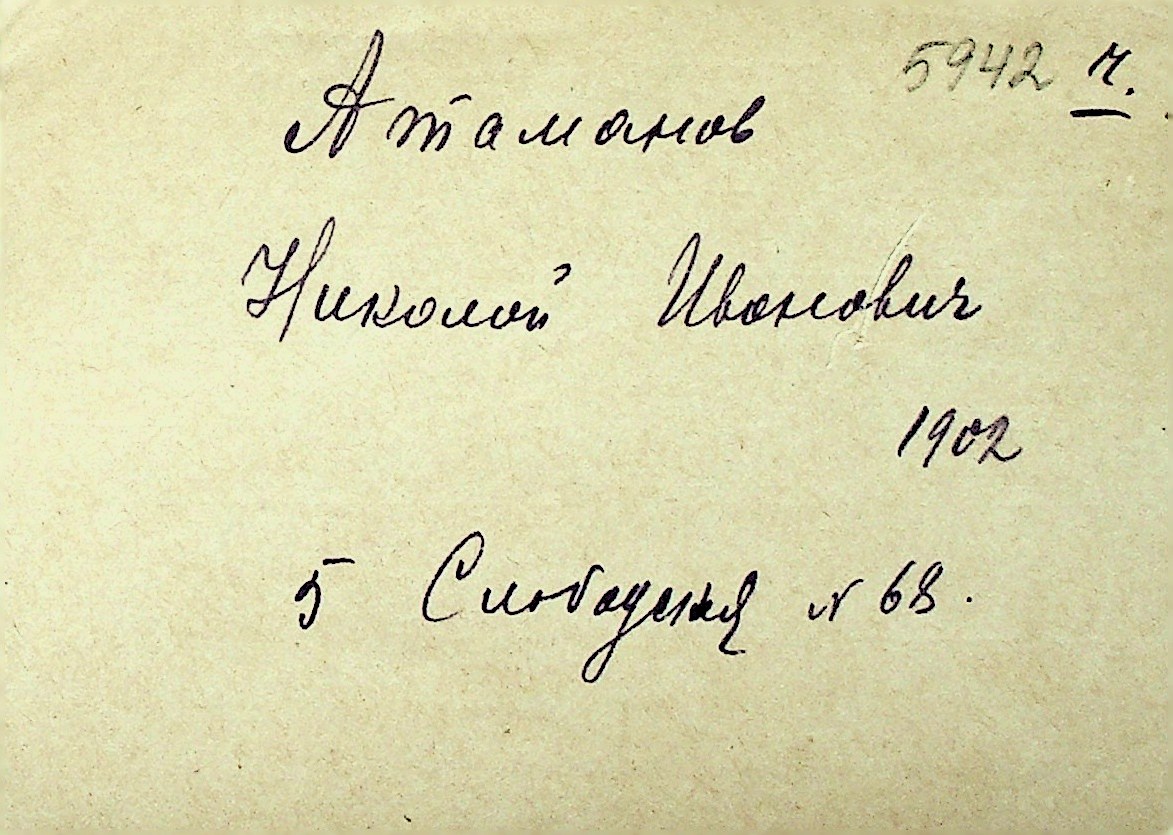 5942 ч.
Атаманов
Николай Иванович
1902
5 Слободская № 68.